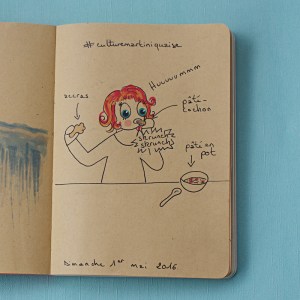 # culturemartiniquaise
Huuuuummm
accras
pâté-
cochon
scrunch
scrunch
pâté en
pot
Dimanche 1er mai 2016